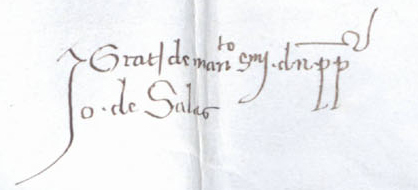 Grat/ de man^to S^mj. d n pp
Jo. de Salas